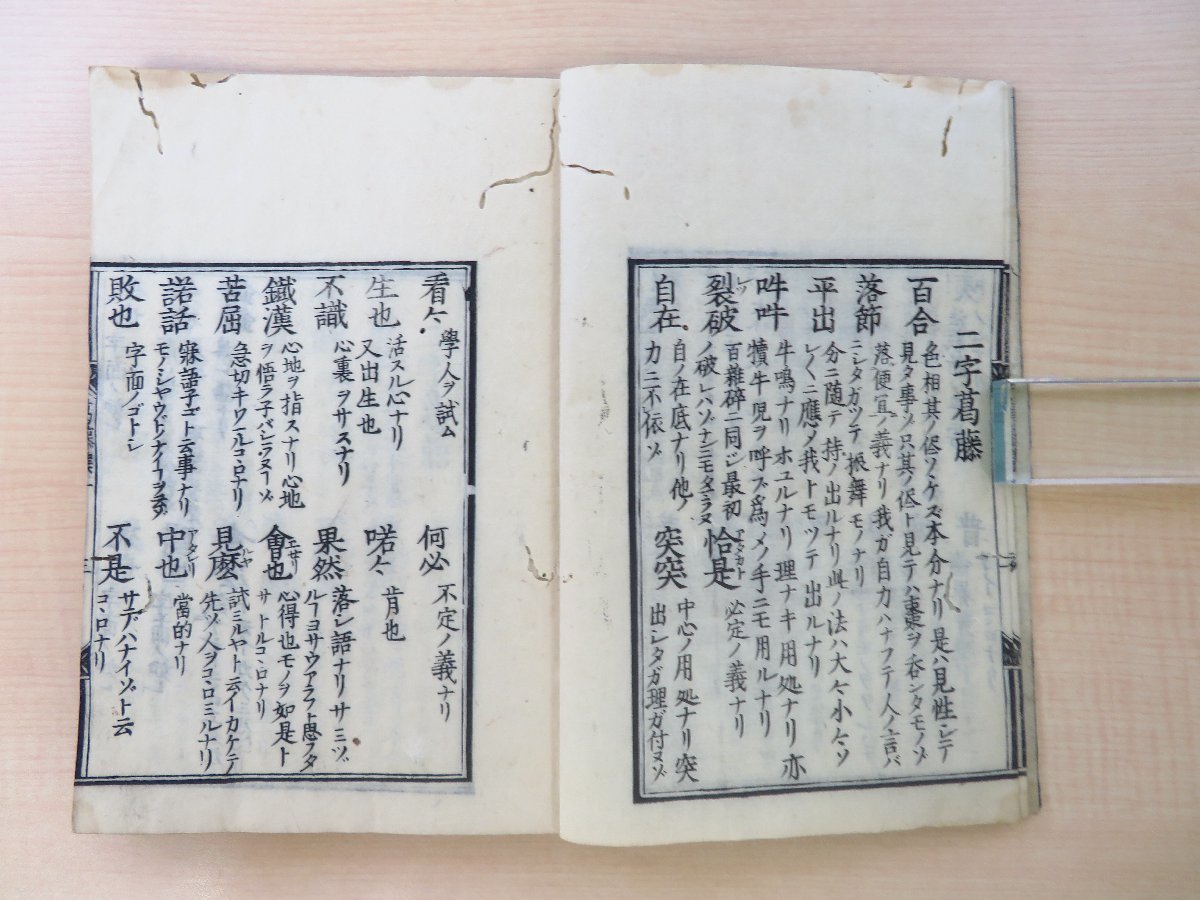 二字葛藤
百合
色相其ノ侭ソケズ本分ナリ是ハ見性シテ
見タ事ゾ只其ノ侭ト見テハ棗ヲ呑ンタモノゾ
落節
落便宜ノ義ナリ我ガ自力ハナフテ人ノ言バ
ニシタガツテ振舞モノナリ
平出
分ニ随テ持ノ出ルナリ此ノ法ハ大ケ小ケソ
レ〱ニ應メ我トモツテ出ルナリ
吽吽
牛鳴ナリホユルナリ理ナキ用処ナリ亦
犢牛児ヲ呼ス為メノ手ニモ用ルナリ
裂破
百雜碎ニ同ジ最初
ノ破レハゾナンニモタラヌ
恰是
アタカト
必定ノ義ナリ
自在
自ノ在底ナリ他ノ
力ニ不依ゾ
突突
中心ノ用処ナリ突
出シタガ理ガ付ヌゾ
看々
學人ヲ試ム
何必
不定ノ義ナリ
生也
活スル心ナリ
又出生也
喏々
肯也
不識
心裏ヲサスナリ
果然
落シ語ナリサミゾ
ルーヨサウアラフト思タ
鐵漢
心地ヲ指スナリ心地
ヲ悟ラ子バシラヌーゾ
會也
エサリ
心得也モノヲ如是ト
サトルコヽロナリ
苦屈
急切キワマルコヽロナリ
見麼
ルヤ
試ミルヤト云イカケテ
先ゾ人ヲコヽロミルナリ
諾話
寐語子ゴト云事ナリ
中也
アタレリ
當的ナリ
敗也
字面ノゴトシ
不是
サデハナイゾト云
コヽロナリ